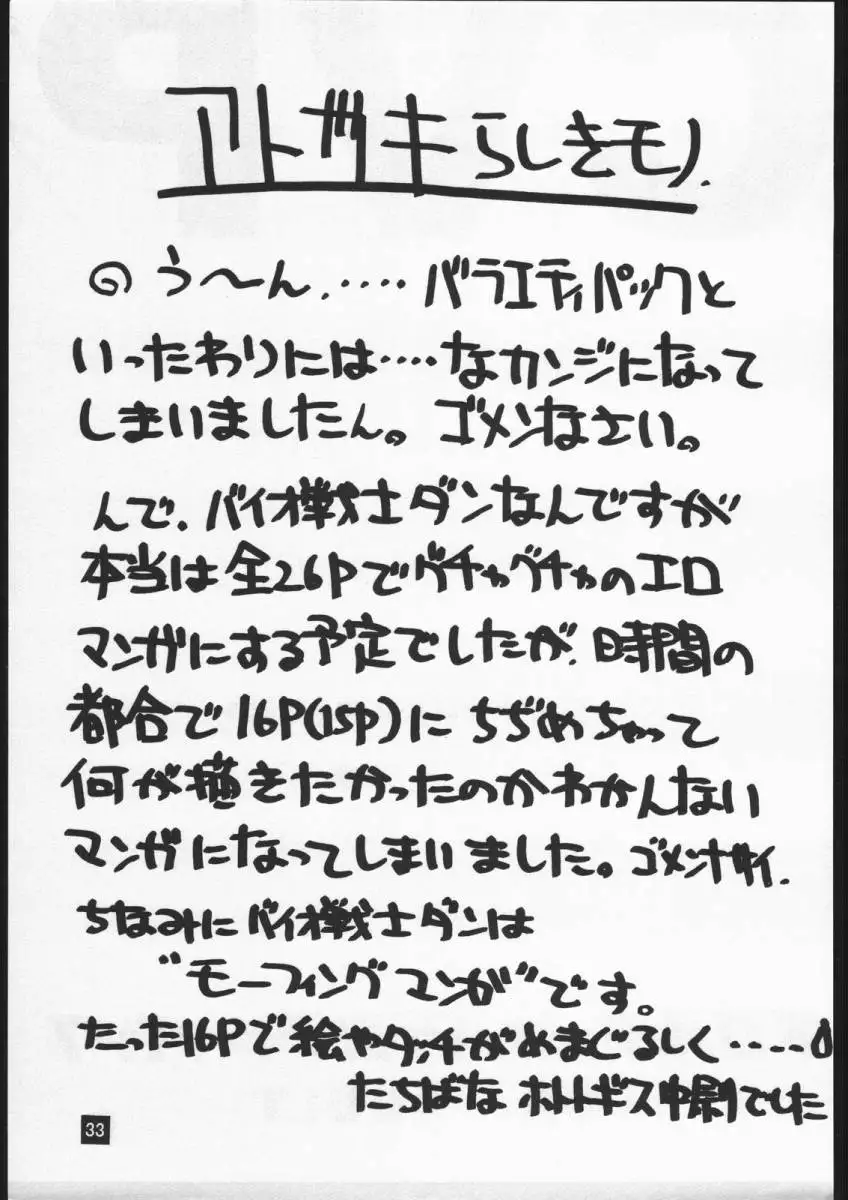 アトガキらしきモノ.
のう〜ん.‥‥バラエティパックと
いったわりには‥‥なカンジになって
しまいましたん。ゴメンなさい。
んで、バイオ戦士ダンなんですが
本当は全26Pでグチャグチャのエロ
マンガにする予定でしたが、時間の
都合で16P(15P)にちぢめちゃって
何が描きたかったのかわかんない
マンガになってしまいました。ゴメンナサイ.
ちなみにバイオ戦士ダンは
"モーフィングマンガ"です。
たった16Pで絵やタッチがめまぐるしく‥‥
たちばなホトトギス中尉でした
33